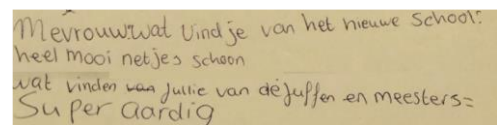 Mevrouw:wat vind je van het nieuwe school:
heel mooi netjes schoon
wat vinden van jullie van de juffen en meesters=
Super aardig